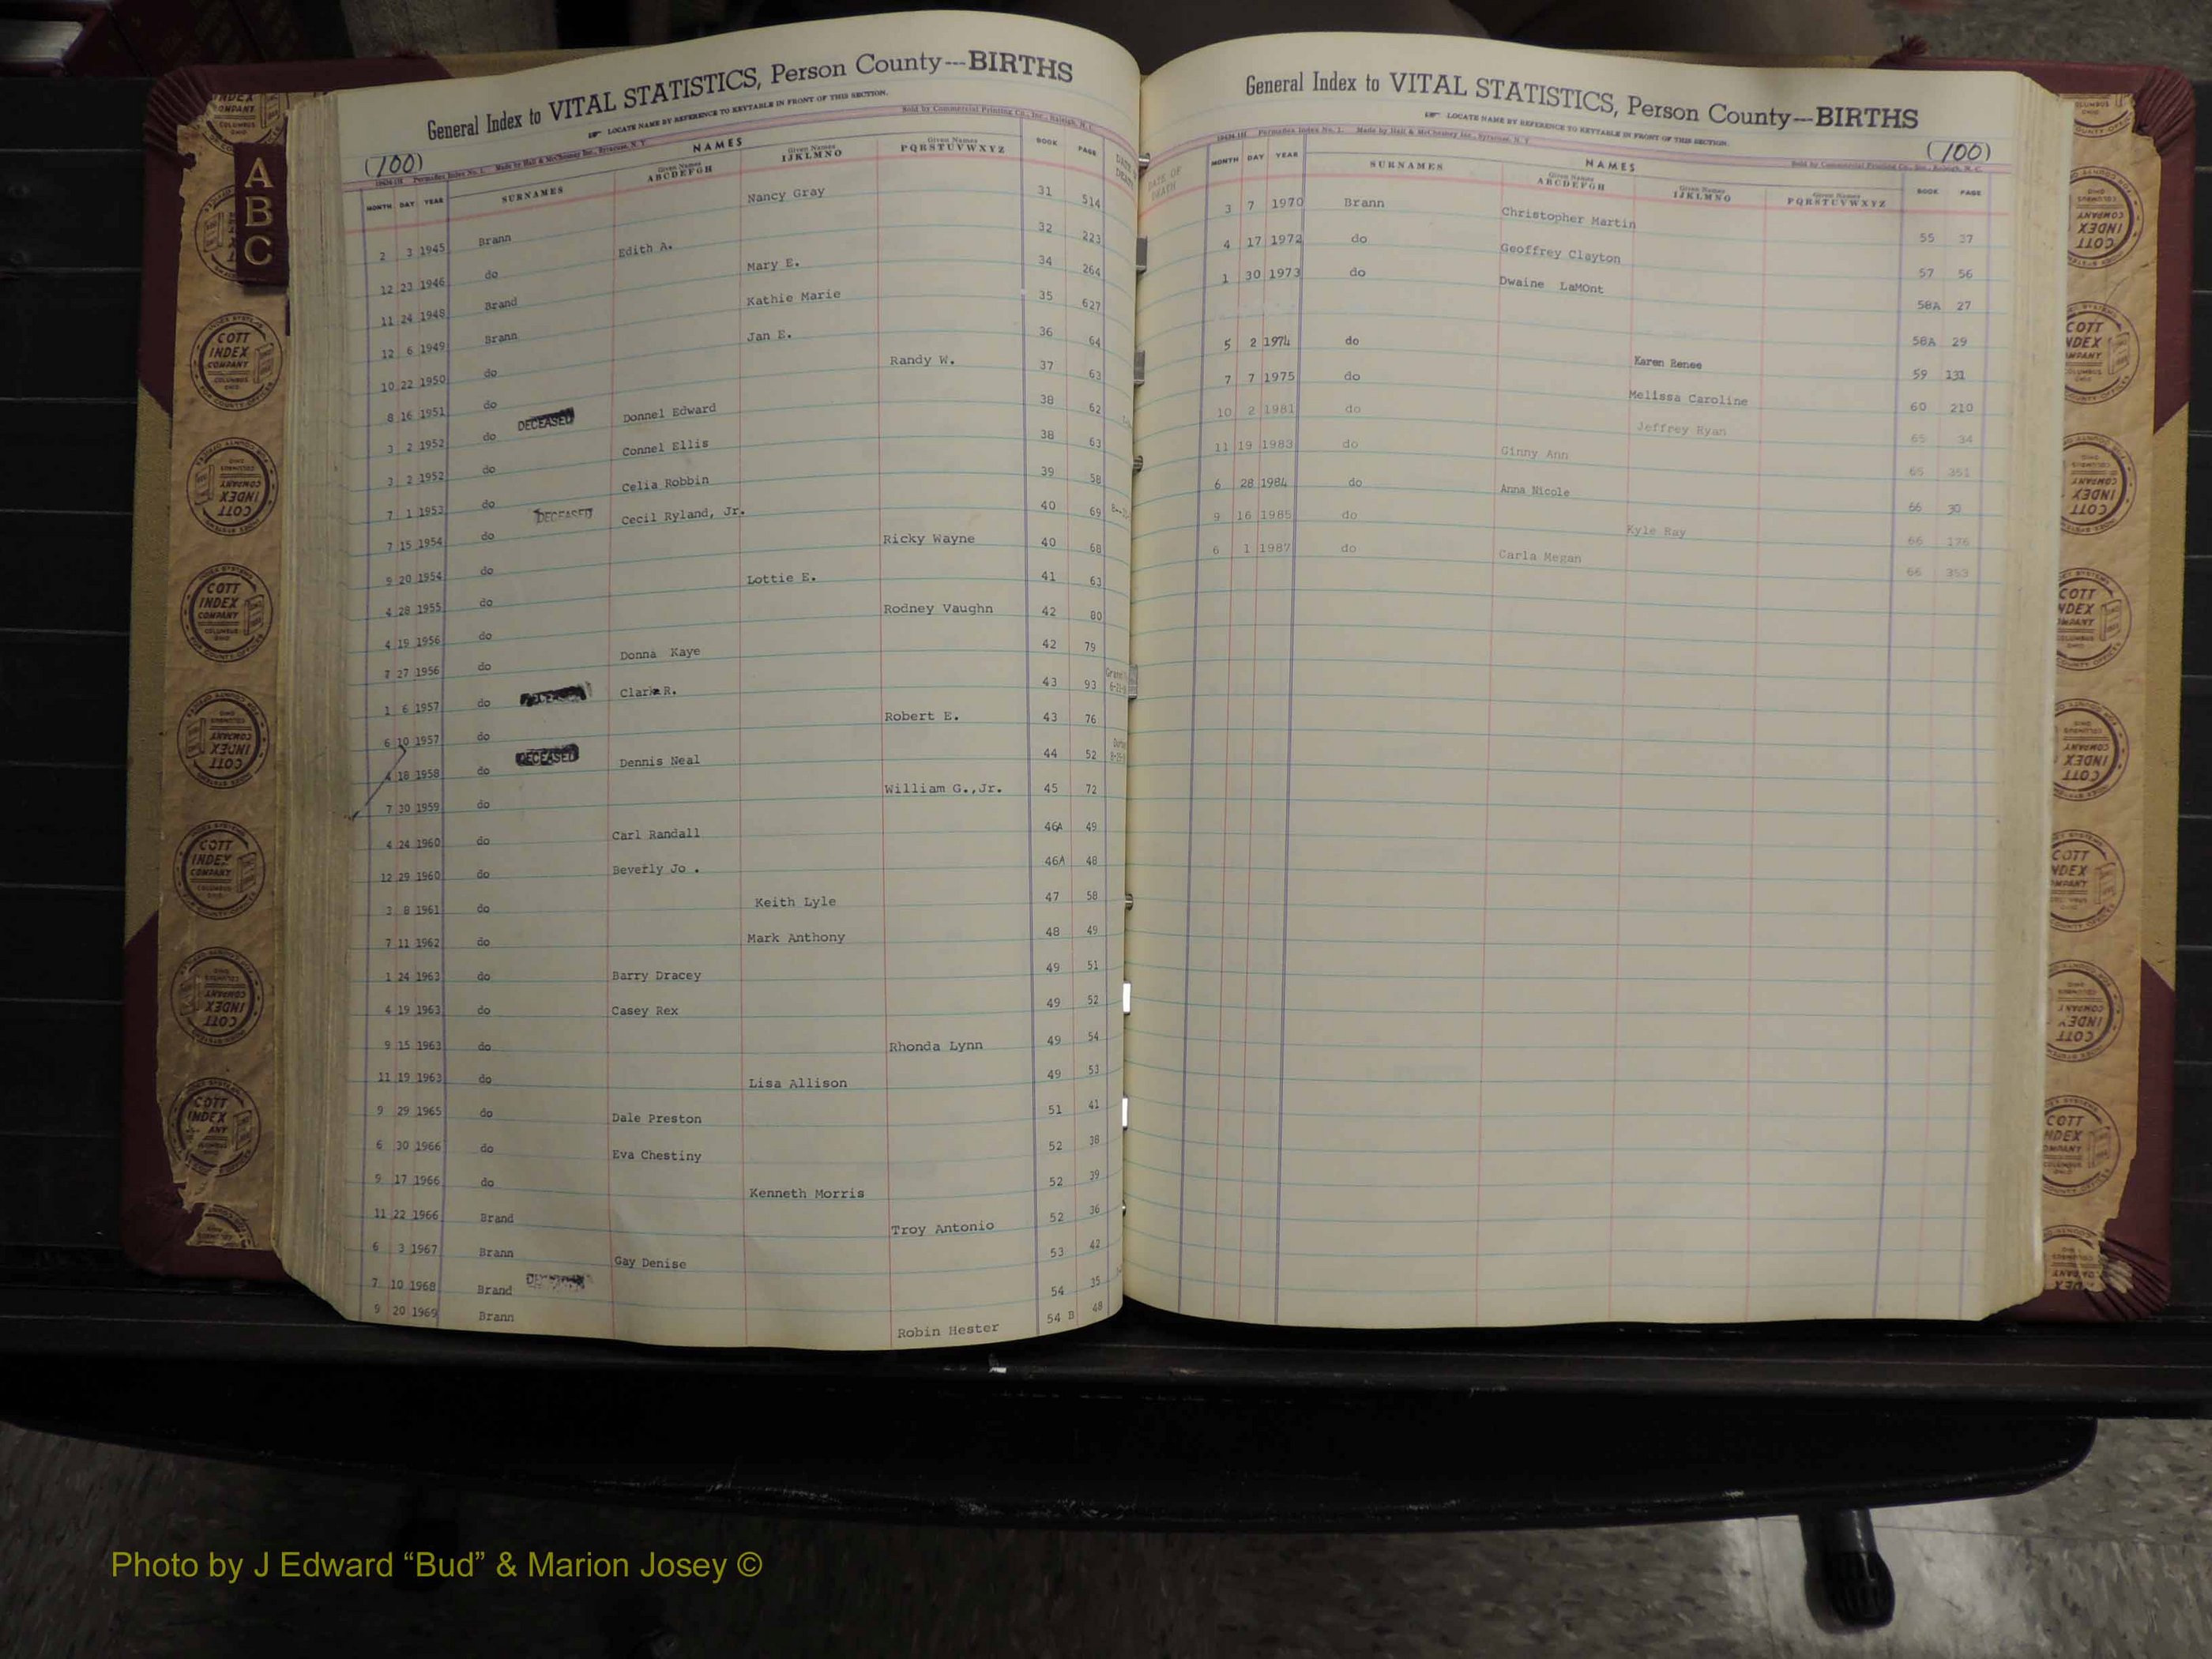 General Index to VITAL STATISTICS, Person County---BIRTHS
LOCATE NAME BY REFERENCE TO KEYTABLE IN FRONT OF THIS SECTION.
(100)
Made by Hall & McChesney Inc., Syracuse, N. Y.
Sold by Commercial Printing Co., Inc., Raleigh, N. C.
NAMES
MONTH DAY YEAR SURNAMES Given Names ABCDEFGH Given Names IJKLMNO Given Names PQRSTUVWXYZ BOOK PAGE
2 3 1945 Brann Nancy Gray 31 514
12 23 1946 do Edith A. 32 223
11 24 1948 Brand Mary E. 34 264
12 6 1949 Brann Kathie Marie 35 627
10 22 1950 do Jan E. 36 64
8 16 1951 do Randy W. 37 63
3 2 1952 do DECEASED Donnel Edward 38 62
3 2 1952 do Connel Ellis 38 63
7 1 1953 do Celia Robbin 39 58
7 15 1954 do DECEASED Cecil Ryland, Jr. 40 69
9 20 1954 do Ricky Wayne 40 68
4 28 1955 do Lottie E. 41 63
4 19 1956 do Rodney Vaughn 42 80
7 27 1956 do Donna Kaye 42 79
1 6 1957 do DECEASED Clark R. 43 93
6 10 1957 do Robert E. 43 76
4 18 1958 do DECEASED Dennis Neal 44 52
7 30 1959 do William G.,Jr. 45 72
4 24 1960 do Carl Randall 46A 49
12 29 1960 do Beverly Jo . 46A 48
3 8 1961 do Keith Lyle 47 58
7 11 1962 do Mark Anthony 48 49
1 24 1963 do Barry Dracey 49 51
4 19 1963 do Casey Rex 49 52
9 15 1963 do Rhonda Lynn 49 54
11 19 1963 do Lisa Allison 49 53
9 29 1965 do Dale Preston 51 41
6 30 1966 do Eva Chestiny 52 38
9 17 1966 do Kenneth Morris 52 39
11 22 1966 Brand Troy Antonio 52 36
6 3 1967 Brann Gay Denise 53 42
7 10 1968 Brand 54 35
9 20 1969 Brann Robin Hester 54 B 48
General Index to VITAL STATISTICS, Person County---BIRTHS
LOCATE NAME BY REFERENCE TO KEYTABLE IN FRONT OF THIS SECTION.
(100)
Made by Hall & McChesney Inc., Syracuse, N. Y.
Sold by Commercial Printing Co., Inc., Raleigh, N. C.
NAMES
DATE OF DEATH MONTH DAY YEAR SURNAMES Given Names ABCDEFGH Given Names IJKLMNO Given Names PQRSTUVWXYZ BOOK PAGE
3 7 1970 Brann Christopher Martin 55 37
4 17 1972 do Geoffrey Clayton 57 56
1 30 1973 do Dwaine LaMOnt 58A 27
58A 29
5 2 1974 do Karen Renee 59 131
7 7 1975 do Melissa Caroline 60 210
10 2 1981 do Jeffrey Ryan 65 34
11 19 1983 do Ginny Ann 65 351
6 28 1984 do Anna Nicole 66 30
9 16 1985 do Kyle Ray 66 176
6 1 1987 do Carla Megan 66 353
A
B
C
COTT INDEX COMPANY
COLUMBUS OHIO
Photo by J Edward “Bud” & Marion Josey ©